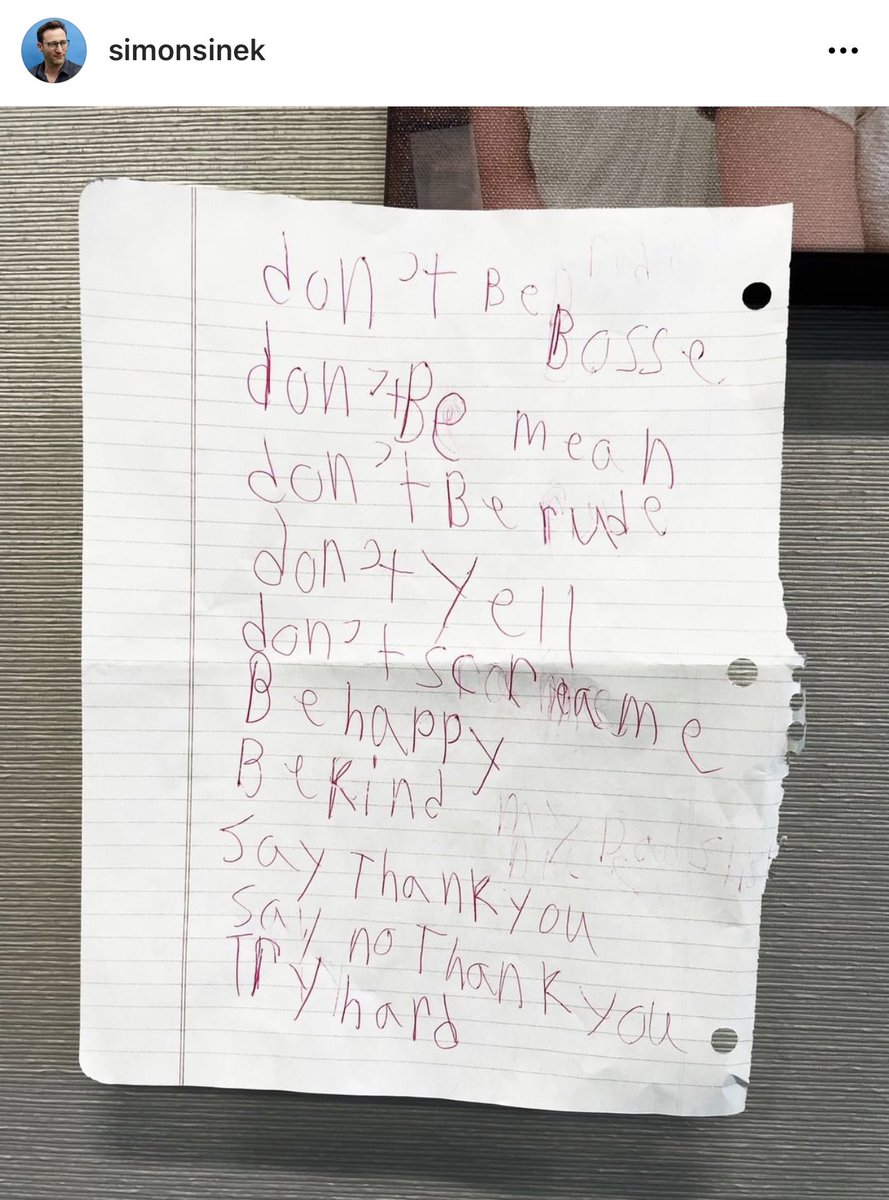 simonsinek
don't Be
Bosse
don't Be mean
don't Be rude
don't yell
don't
Be happy
Be kind
Say Thank you
Say no Thank you
Try hard